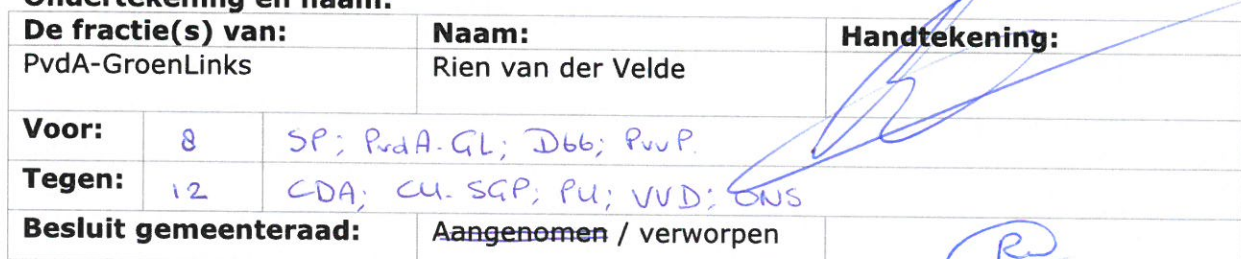 Ondertekening en naam:
De fractie(s) van: Naam: Handtekening:
PvdA-GroenLinks Rien van der Velde
Voor: 8 SP; PvdA-GL; D66; PvvP.
Tegen: 12 CDA; CU-SGP; PU; VVD; ONS
Besluit gemeenteraad: Aangenomen / verworpen